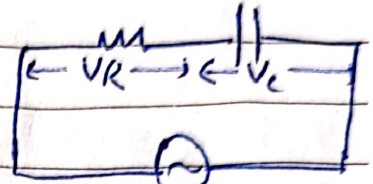 VR Vc